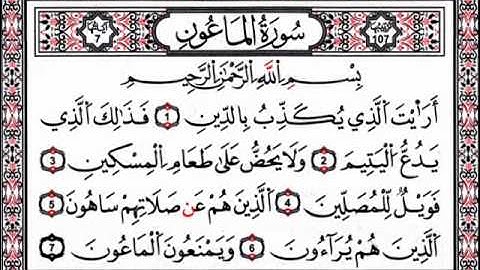 آياتها 7 سُورَةُ الْمَاعُونَ ترتيبها 107
بِسْمِ اللَّهِ الرَّحْمَٰنِ الرَّحِيمِ
أَرَأَيْتَ الَّذِي يُكَذِّبُ بِالدِّينِ 1 فَذَٰلِكَ الَّذِي
يَدُعُّ الْيَتِيمَ 2 وَلَا يَحُضُّ عَلَىٰ طَعَامِ الْمِسْكِينِ 3
فَوَيْلٌ لِّلْمُصَلِّينَ 4 الَّذِينَ هُمْ عَن صَلَاتِهِمْ سَاهُونَ 5
الَّذِينَ هُمْ يُرَاءُونَ 6 وَيَمْنَعُونَ الْمَاعُونَ 7